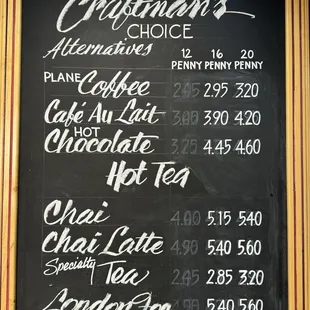 Craftman's
CHOICE
Alternatives 12 16 20
PENNY PENNY PENNY
PLANE Coffee 2.45 2.95 3.20
Café Au Lait 3.90 4.20
HOT
Chocolate 3.75 4.45 4.60
Hot Tea
Chai 4.00 5.15 5.40
Chai Latte 4.90 5.40 5.60
Specialty Tea 2.45 2.85 3.20
London Fog 5.40 5.60